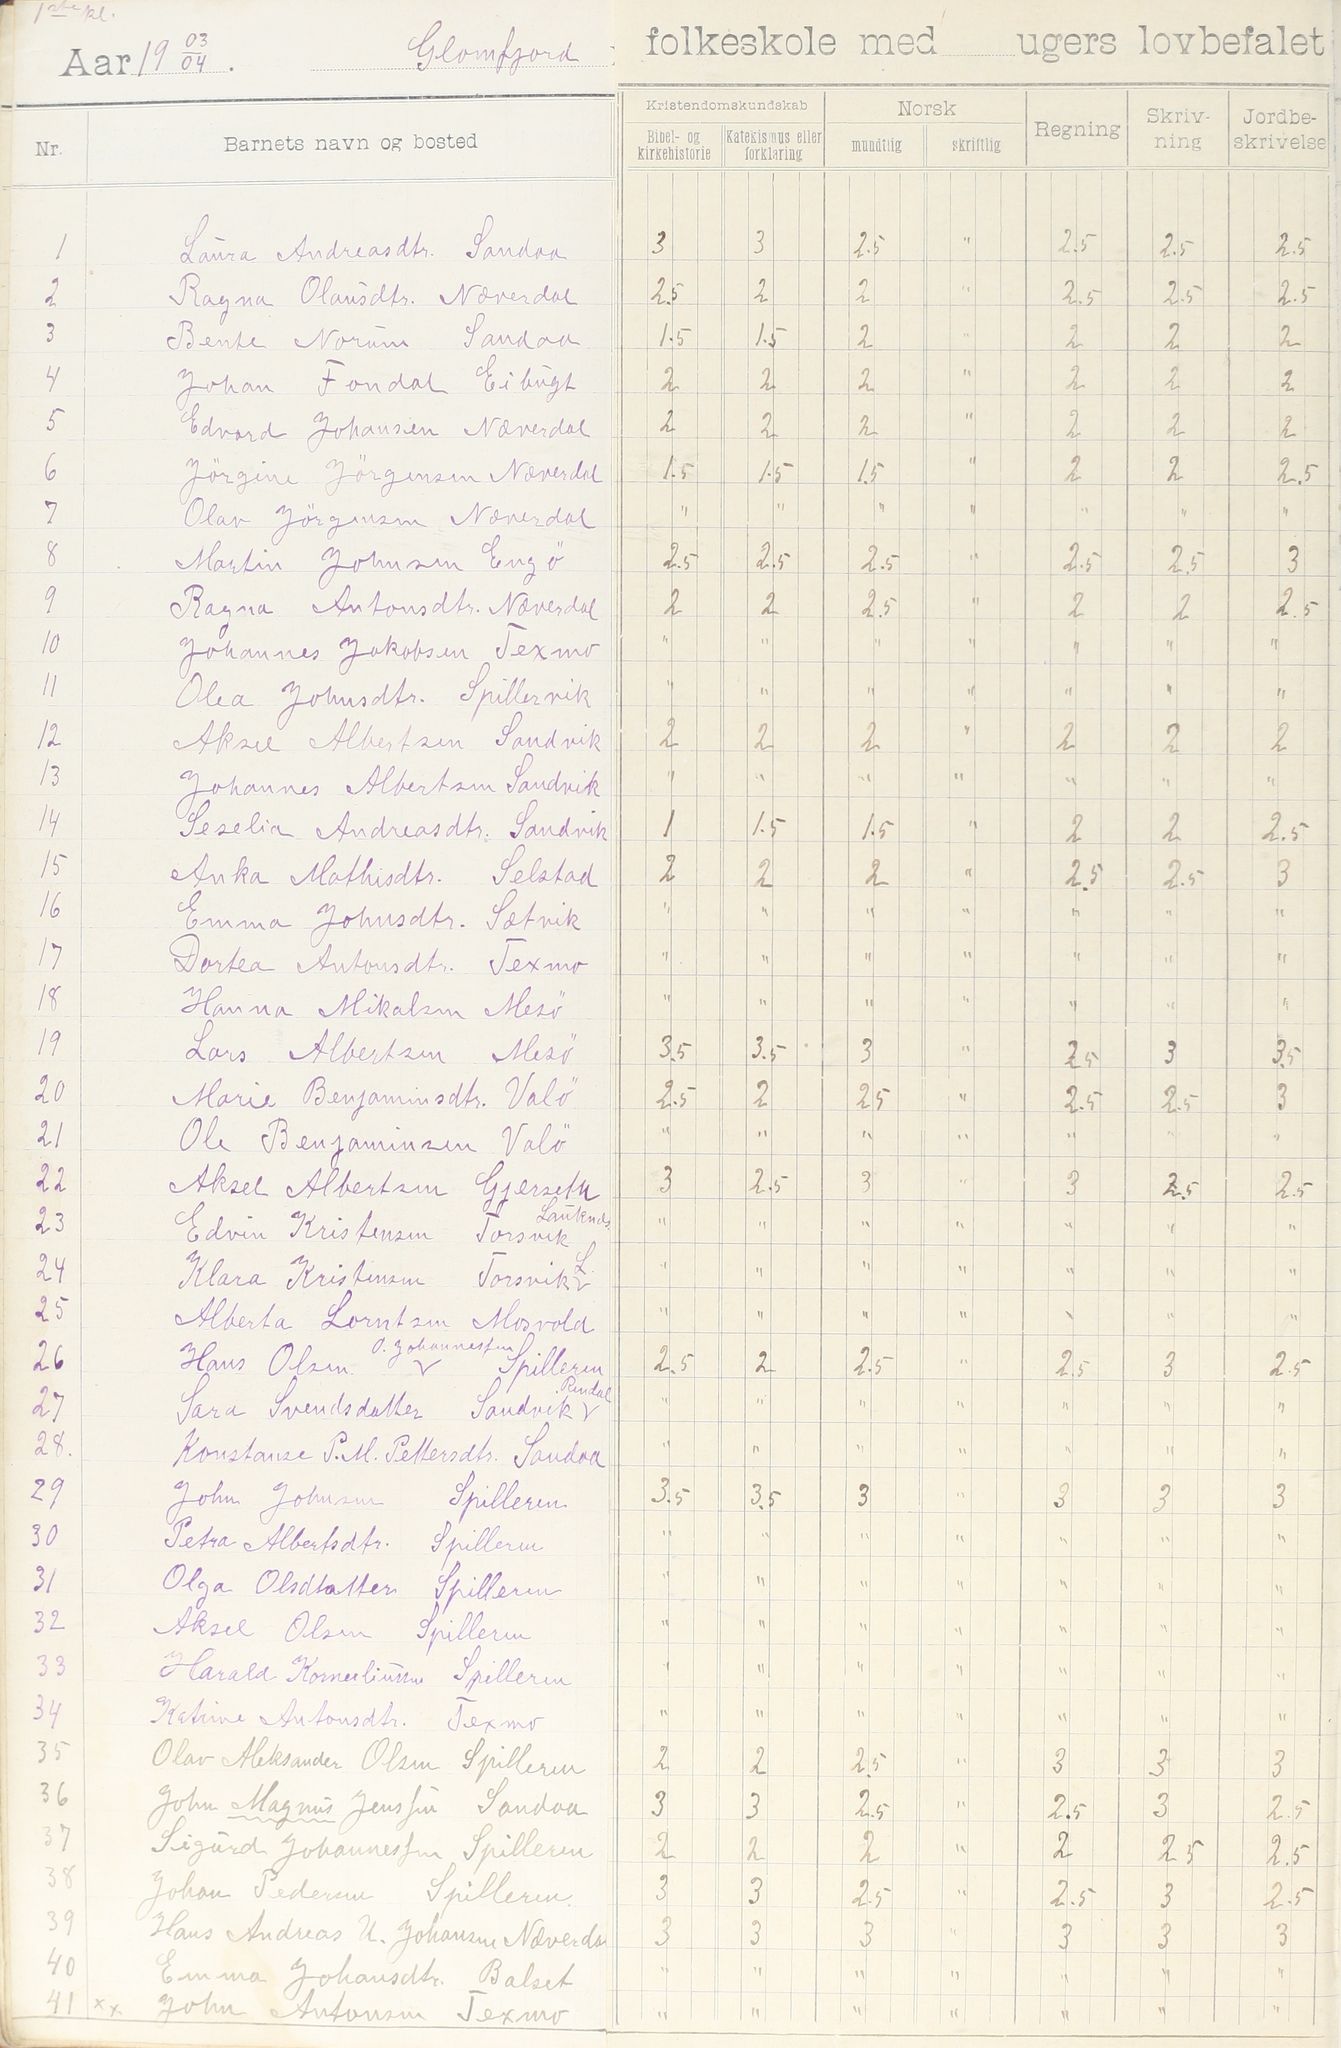 1ste kl.
Aar 19 03/04. Glomfjord folkeskole med ugers lovbefalet
Nr. Barnets navn og bosted Kristendomskundskab Norsk Regning Skriv-ning Jordbe-skrivelse
Bibel- og kirkehistorie Katekismus eller forklaring mundtlig skriftlig
1 Laura Andreasdtr. Sandaa 3 3 2.5 " 2.5 2.5 2.5
2 Ragna Olausdtr. Næverdal 2.5 2 2 " 2.5 2.5 2.5
3 Bente Norum Sandaa 1.5 1.5 2 " 2 2 2
4 Johan Fondal Eibugt 2 2 2 " 2 2 2
5 Edvard Johansen Næverdal 2 2 2 " 2 2 2
6 Jörgine Jörgensen Næverdal 1.5 1.5 1.5 " 2 2 2.5
7 Olav Jörgensen Næverdal " " " " " " "
8 Martin Johnsen Engö 2.5 2.5 2.5 " 2.5 2.5 3
9 Ragna Antonsdtr. Næverdal 2 2 2.5 " 2 2 2.5
10 Johannes Jakobsen Texmo " " " " " " "
11 Olea Johnsdtr. Spillervik " " " " " " "
12 Aksel Albertsen Sandvik 2 2 2 " 2 2 2
13 Johannes Albertsen Sandvik " " " " " " "
14 Seselia Andreasdtr. Sandvik 1 1.5 1.5 " 2 2 2.5
15 Anka Mathisdtr. Selstad 2 2 2 " 2.5 2.5 3
16 Emma Johnsdtr. Sætvik " " " " " " "
17 Dortea Antonsdtr. Texmo " " " " " " "
18 Hanna Mikalsen Mesö " " " " " " "
19 Lars Albertsen Mesö 3.5 3.5 3 " 2.5 3 3.5
20 Marie Benjaminsdtr. Valö 2.5 2 2.5 " 2.5 2.5 3
21 Ole Benjaminsen Valö " " " " " " "
22 Aksel Albertsen Gjerseth 3 2.5 3 " 3 2.5 2.5
23 Edvin Kristensen Torsvik Lauknes " " " " " " "
24 Klara Kristensen Torsvik L. " " " " " " "
25 Alberta Lorntsen Mosvold " " " " " " "
26 Hans Olsen O. Johannessen Spilleren 2.5 2 2.5 " 2.5 3 2.5
27 Sara Svendsdatter Sandvik Rendal " " " " " " "
28. Konstanse P.M. Pettersdtr. Sandaa " " " " " " "
29 John Johnsen Spilleren 3.5 3.5 3 " 3 3 3
30 Petra Albertsdtr. Spilleren " " " " " " "
31 Olga Olsdtatter Spilleren " " " " " " "
32 Aksel Olsen Spilleren " " " " " " "
33 Harald Korneliussen Spilleren " " " " " " "
34 Katrine Antonsdtr. Texmo " " " " " " "
35 Olav Aleksander Olsen Spilleren 2 2 2.5 " 3 3 3
36 John Magnus Jenssen Sandaa 3 3 2.5 " 2.5 3 2.5
37 Sigurd Johannessen Spilleren 2 2 2 " 2 2.5 2.5
38 Johan Pedersen Spilleren. 3 3 2.5 " 2.5 3 2.5
39 Hans Andreas U. Johansen Næverdal 3 3 3 " 3 3 3
40 Emma Johansdtr. Balset " " " " " " "
41 xx John Antonsen Texmo " " " " " " "